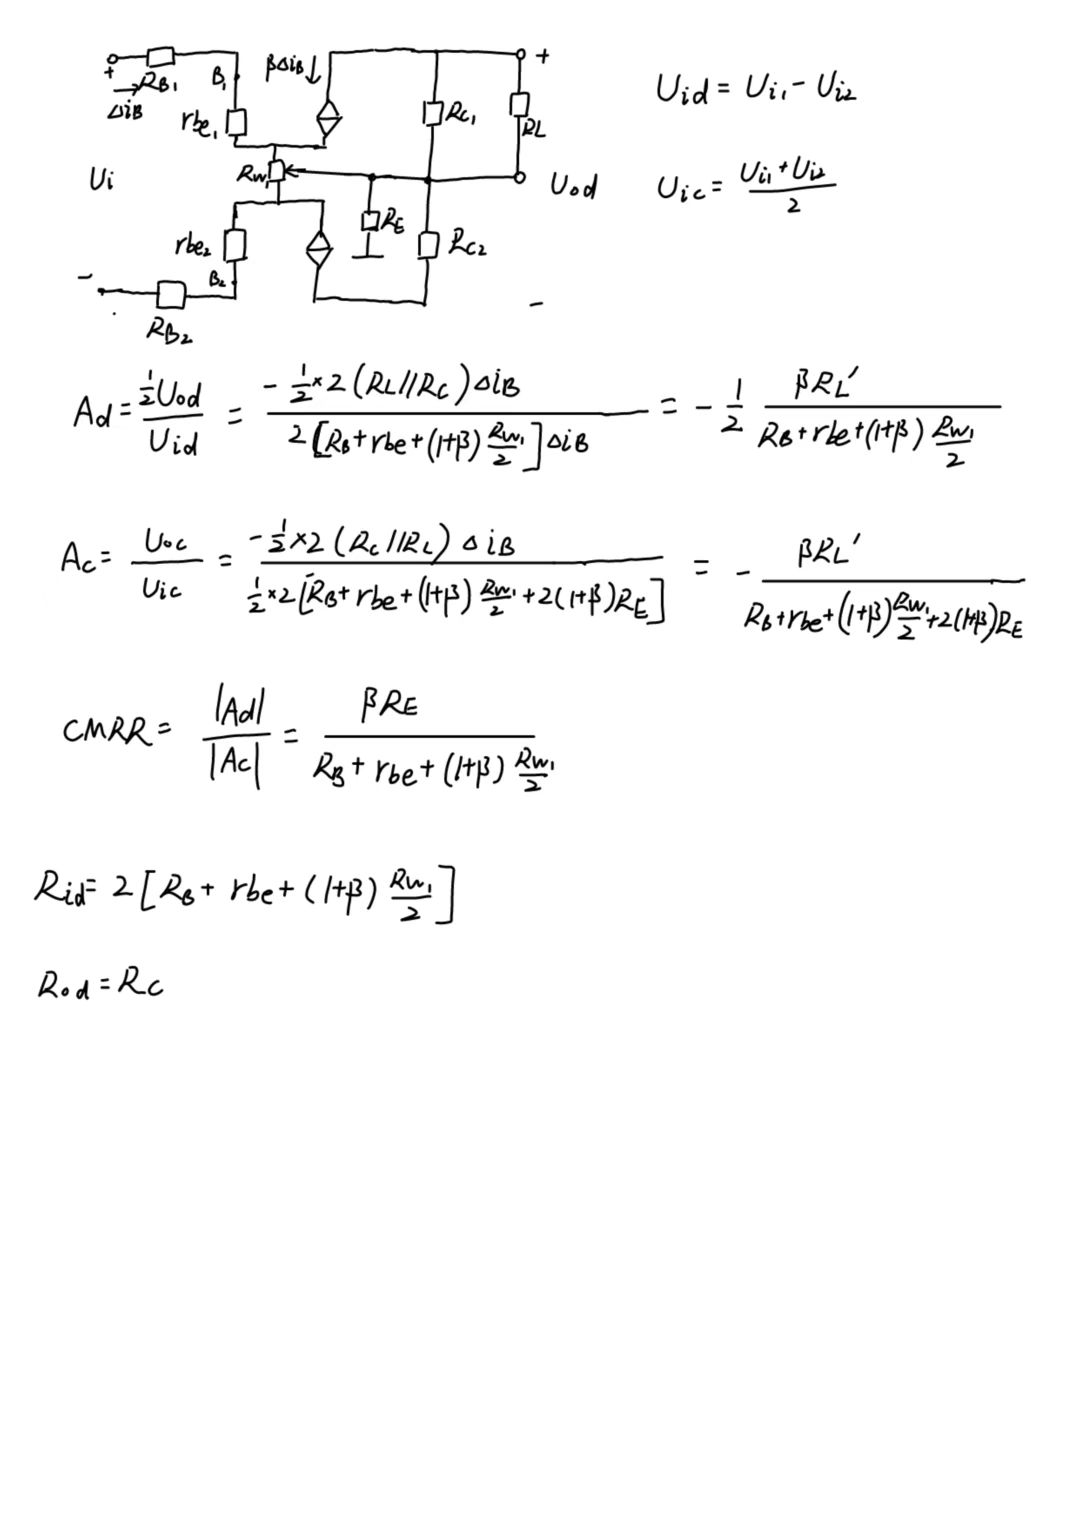 + RB1 B1 βΔiB↓ +
→ΔiB rbe1 RC1 RL
Uid = Ui1 - Ui2
Ui RW1 Uod
Uic = (Ui1 + Ui2)/2
rbe2 RE RC2
- B2 -
RB2
Ad = (½Uod)/Uid = (-½×2(RL//RC)ΔiB)/(2[RB+rbe+(1+β)RW1/2]ΔiB) = -½ βRL′/(RB+rbe+(1+β)RW1/2)
Ac = Uoc/Uic = (-½×2(RC//RL)ΔiB)/(½×2[RB+rbe+(1+β)RW1/2+2(1+β)RE]) = -βRL′/(RB+rbe+(1+β)RW1/2+2(1+β)RE)
CMRR = |Ad|/|Ac| = βRE/(RB+rbe+(1+β)RW1/2)
Rid = 2[RB+rbe+(1+β)RW1/2]
Rod = RC